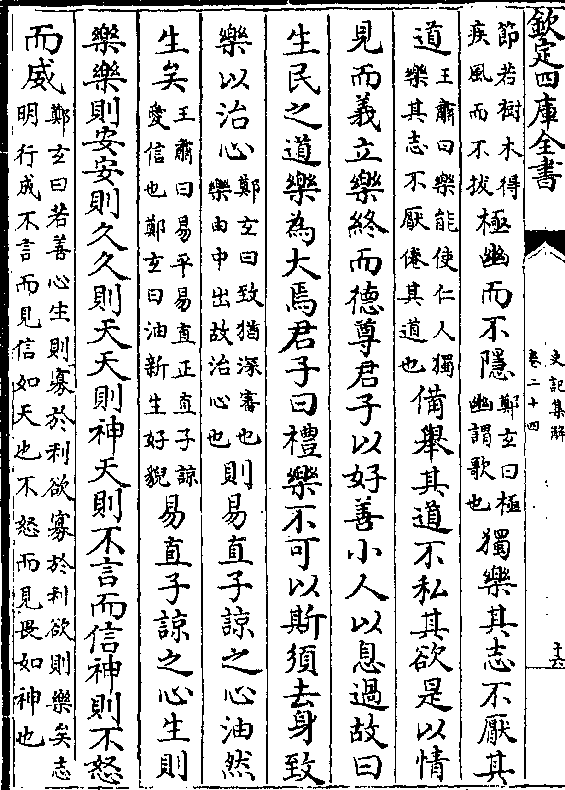 欽定四庫全書
史記集解
卷二十四
十六
節若樹木得
疾風而不拔
極幽而不隱
鄭玄曰極
幽謂歌也
獨樂其志不厭其
道
王肅曰樂能使仁人獨
樂其志不厭倦其道也
備舉其道不私其欲是以情
見而義立樂終而德尊君子以好善小人以息過故曰
生民之道樂為大焉君子曰禮樂不可以斯須去身致
樂以治心
鄭玄曰致猶深審也
樂由中出故治心也
則易直子諒之心油然
生矣
王肅曰易平易直正直子諒
愛信也鄭玄曰油新生好貌
易直子諒之心生則
樂樂則安安則久久則天天則神天則不言而信神則不怒
而威
鄭玄曰若善心生則寡於利欲寡於利欲則樂矣志
明行成不言而見信如天也不怒而見畏如神也